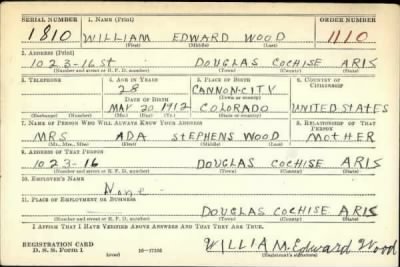 SERIAL NUMBER 1. NAME (Print) ORDER NUMBER
1810 WILLIAM EDWARD WOOD 1110
(First) (Middle) (Last)
2. ADDRESS (Print)
1023-16 St DOUGLAS COCHISE ARIS
(Number and street or R. F. D. number) (Town) (County) (State)
3. TELEPHONE 4. AGE IN YEARS 5. PLACE OF BIRTH 6. COUNTRY OF CITIZENSHIP
28 CANNON-CITY
DATE OF BIRTH (Town or county)
MAY 20 1912 COLORADO UNITED STATES
(Exchange) (Number) (Mo.) (Day) (Yr.) (State or country)
7. NAME OF PERSON WHO WILL ALWAYS KNOW YOUR ADDRESS 8. RELATIONSHIP OF THAT PERSON
MRS ADA STEPHENS WOOD MOTHER
(Mr., Mrs., Miss) (First) (Middle) (Last)
9. ADDRESS OF THAT PERSON
1023-16 DOUGLAS COCHISE ARIS
(Number and street or R. F. D. number) (Town) (County) (State)
10. EMPLOYER'S NAME
None
11. PLACE OF EMPLOYMENT OR BUSINESS
DOUGLAS COCHISE ARIS
(Number and street or R. F. D. number) (Town) (County) (State)
I AFFIRM THAT I HAVE VERIFIED ABOVE ANSWERS AND THAT THEY ARE TRUE.
REGISTRATION CARD WILLIAM Edward Wood
D. S. S. Form 1 (over) (Registrant's signature)